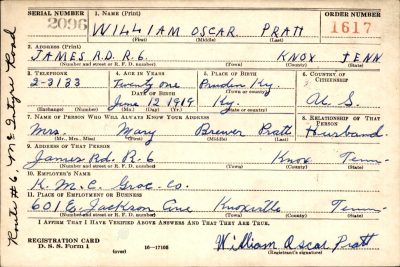 SERIAL NUMBER 1. NAME (Print) ORDER NUMBER
2096 WILLIAM OSCAR PRATT 1617
(First) (Middle) (Last)
2. ADDRESS (Print)
JAMES R.D. R.6 KNOX TENN
(Number and street or R. F. D. number) (Town) (County) (State)
3. TELEPHONE 4. AGE IN YEARS 5. PLACE OF BIRTH 6. COUNTRY OF CITIZENSHIP
2-3133 Twenty one Pruden Ky.
DATE OF BIRTH (Town or county)
June 12 1919 Ky. U. S.
(Exchange) (Number) (Mo.) (Day) (Yr.) (State or country)
7. NAME OF PERSON WHO WILL ALWAYS KNOW YOUR ADDRESS 8. RELATIONSHIP OF THAT PERSON
Mrs. Mary Brewer Pratt Husband
(Mr., Mrs., Miss) (First) (Middle) (Last)
9. ADDRESS OF THAT PERSON
James Rd. R-6 Knox Tenn
(Number and street or R. F. D. number) (Town) (County) (State)
10. EMPLOYER'S NAME
K. M. C. Groc. Co.
11. PLACE OF EMPLOYMENT OR BUSINESS
601 E. Jackson Ave Knoxville Tenn
(Number and street or R. F. D. number) (Town) (County) (State)
I AFFIRM THAT I HAVE VERIFIED ABOVE ANSWERS AND THAT THEY ARE TRUE.
REGISTRATION CARD
D. S. S. Form 1 (over) 16—17105 William Oscar Pratt
(Registrant's signature)
Route #6, McIntyre Road